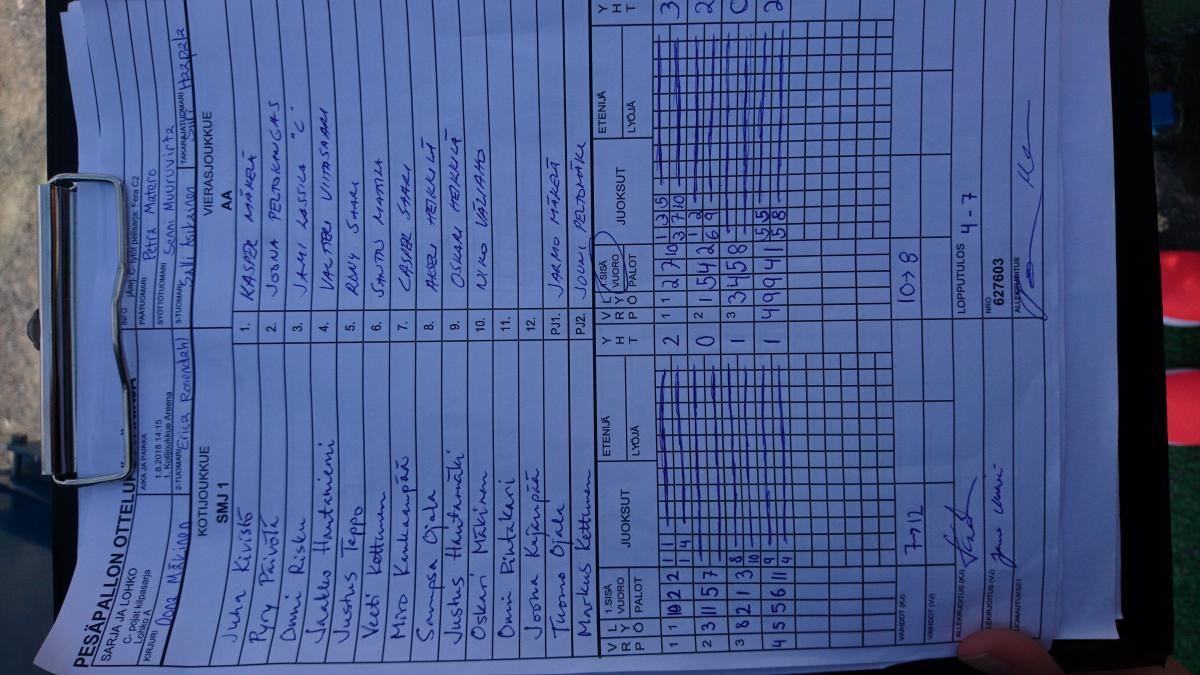 PESÄPALLON OTTELU
SARJA JA LOHKO
C- pojat kilpasarja
Lohko A
AIKA JA PAIKKA
1.8.2018 14:15
1. Kotijoukkue Areena
INFO
jÄrj. C-tytöt pelisarja: Fera C2
KIRJURI
Oona Mäkinen
2-TUOMARI
Erica Rosendahl
PÄÄTUOMARI
Petra Matero
SYÖTTÖTUOMARI
Senni Muuruvirta
3-TUOMARI
TAKARAJATUOMARI
Haapala
KOTIJOUKKUE
SMJ 1
VIERASJOUKKUE
AA
Juha Kivistö 1. KASPER MÄKELÄ
Pyry Päivölä 2. JOONA PELTOKANGAS
Ommi Risku 3. JAMI LASSILA "C"
Jaakko Hautaniemi 4. VALTTERI VIITASAARI
Justus Teppo 5. RONY SAARI
Veeti Kottunen 6. SANTTU MATTILA
Miro Kankaanpää 7. CASPER SAARI
Sampsa Ojala 8. AKSELI HEIKKILÄ
Justus Hautamäki 9. OSKARI HEIKKILÄ
Oskari Mäkinen 10. NIKO VÄLIAHO
Ommi Rintakari 11.
Joona Kajanpää 12.
Tuomo Ojala PJ1. JARMO MÄKELÄ
Markus Kettunen PJ2. JOUNI PELTOMÄKI
V R Ö L Y 1.SISÄ VUORO PALOT JUOKSUT ETENIJÄ LYÖJÄ Y H T V R Ö L Y 1.SISÄ VUORO PALOT JUOKSUT ETENIJÄ LYÖJÄ Y H T
1 1 10 2 2 1 1 1 4 2 1 1 2 7 10 1 3 3 7 5 10 3
2 3 11 5 7 0 2 1 5 4 2 1 6 2 9 2
3 8 2 1 3 8 10 1 3 3 4 5 8 0
4 5 5 6 11 9 4 1 4 9 9 4 1 5 5 5 8 2
VAIHDOT (KJ) 7→12 10→8
VAIHDOT (VJ)
ALLEKIRJOITUS (KJ)
LOPPUTULOS 4-7
ALLEKIRJOITUS (VJ)
NRO
627603
HUOMAUTUKSET
ALLEKIRJOITUS